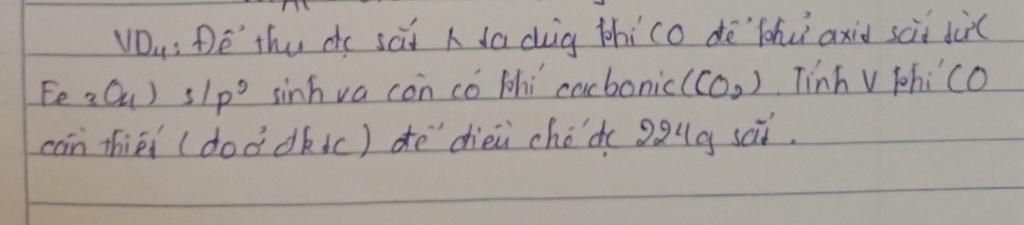 VD4: Để thu đc sắt ∧ ta dùg khí CO để khử oxid sắt từ(
Fe3O4) s/p⁰ sinh va còn có khí cacbonic(CO2). Tính V khí CO
cần thiết (đo ở đktc) để điều chế đc 224g sắt.